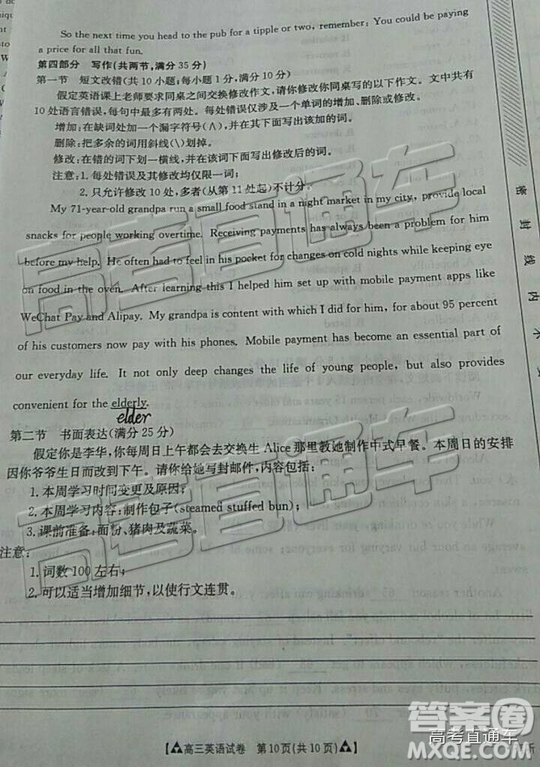 So the next time you head to the pub for a tipple or two, remember: You could be paying
a price for all that fun.
第四部分 写作(共两节,满分 35 分)
第一节 短文改错(共 10 小题;每小题 1 分,满分 10 分)
假定英语课上老师要求同桌之间交换修改作文,请你修改你同桌写的以下作文。文中共有
10 处语言错误,每句中最多有两处。每处错误仅涉及一个单词的增加、删除或修改。
增加:在缺词处加一个漏字符号(∧),并在其下面写出该加的词。
删除:把多余的词用斜线(\)划掉。
修改:在错的词下划一横线,并在该词下面写出修改后的词。
注意:1. 每处错误及其修改均仅限一词;
2. 只允许修改 10 处,多者(从第 11 处起)不计分。
My 71-year-old grandpa run a small food stand in a night market in my city, provide local
snacks for people working overtime. Receiving payments has always been a problem for him
before my help. He often had to feel in his pocket for changes on cold nights while keeping eye
on food in the oven. After learning this I helped him set up with mobile payment apps like
WeChat Pay and Alipay. My grandpa is content with which I did for him, for about 95 percent
of his customers now pay with his phones. Mobile payment has become an essential part of
our everyday life. It not only deep changes the life of young people, but also provides
convenient for the elderly.
elder
第二节 书面表达(满分 25 分)
假定你是李华,你每周日上午都会去交换生 Alice 那里教她制作中式早餐。本周日的安排
因你爷爷生日而改到下午。请你给她写封邮件,内容包括:
1. 本周学习时间变更及原因;
2. 本周学习内容:制作包子(steamed stuffed bun);
3. 课前准备:面粉、猪肉及蔬菜。
注意:
1. 词数 100 左右;
2. 可以适当增加细节,以使行文连贯。
【高三英语试卷 第 10 页(共 10 页)】
密封线内
高考直通车
答案圈
高考直通车
MXQE.COM